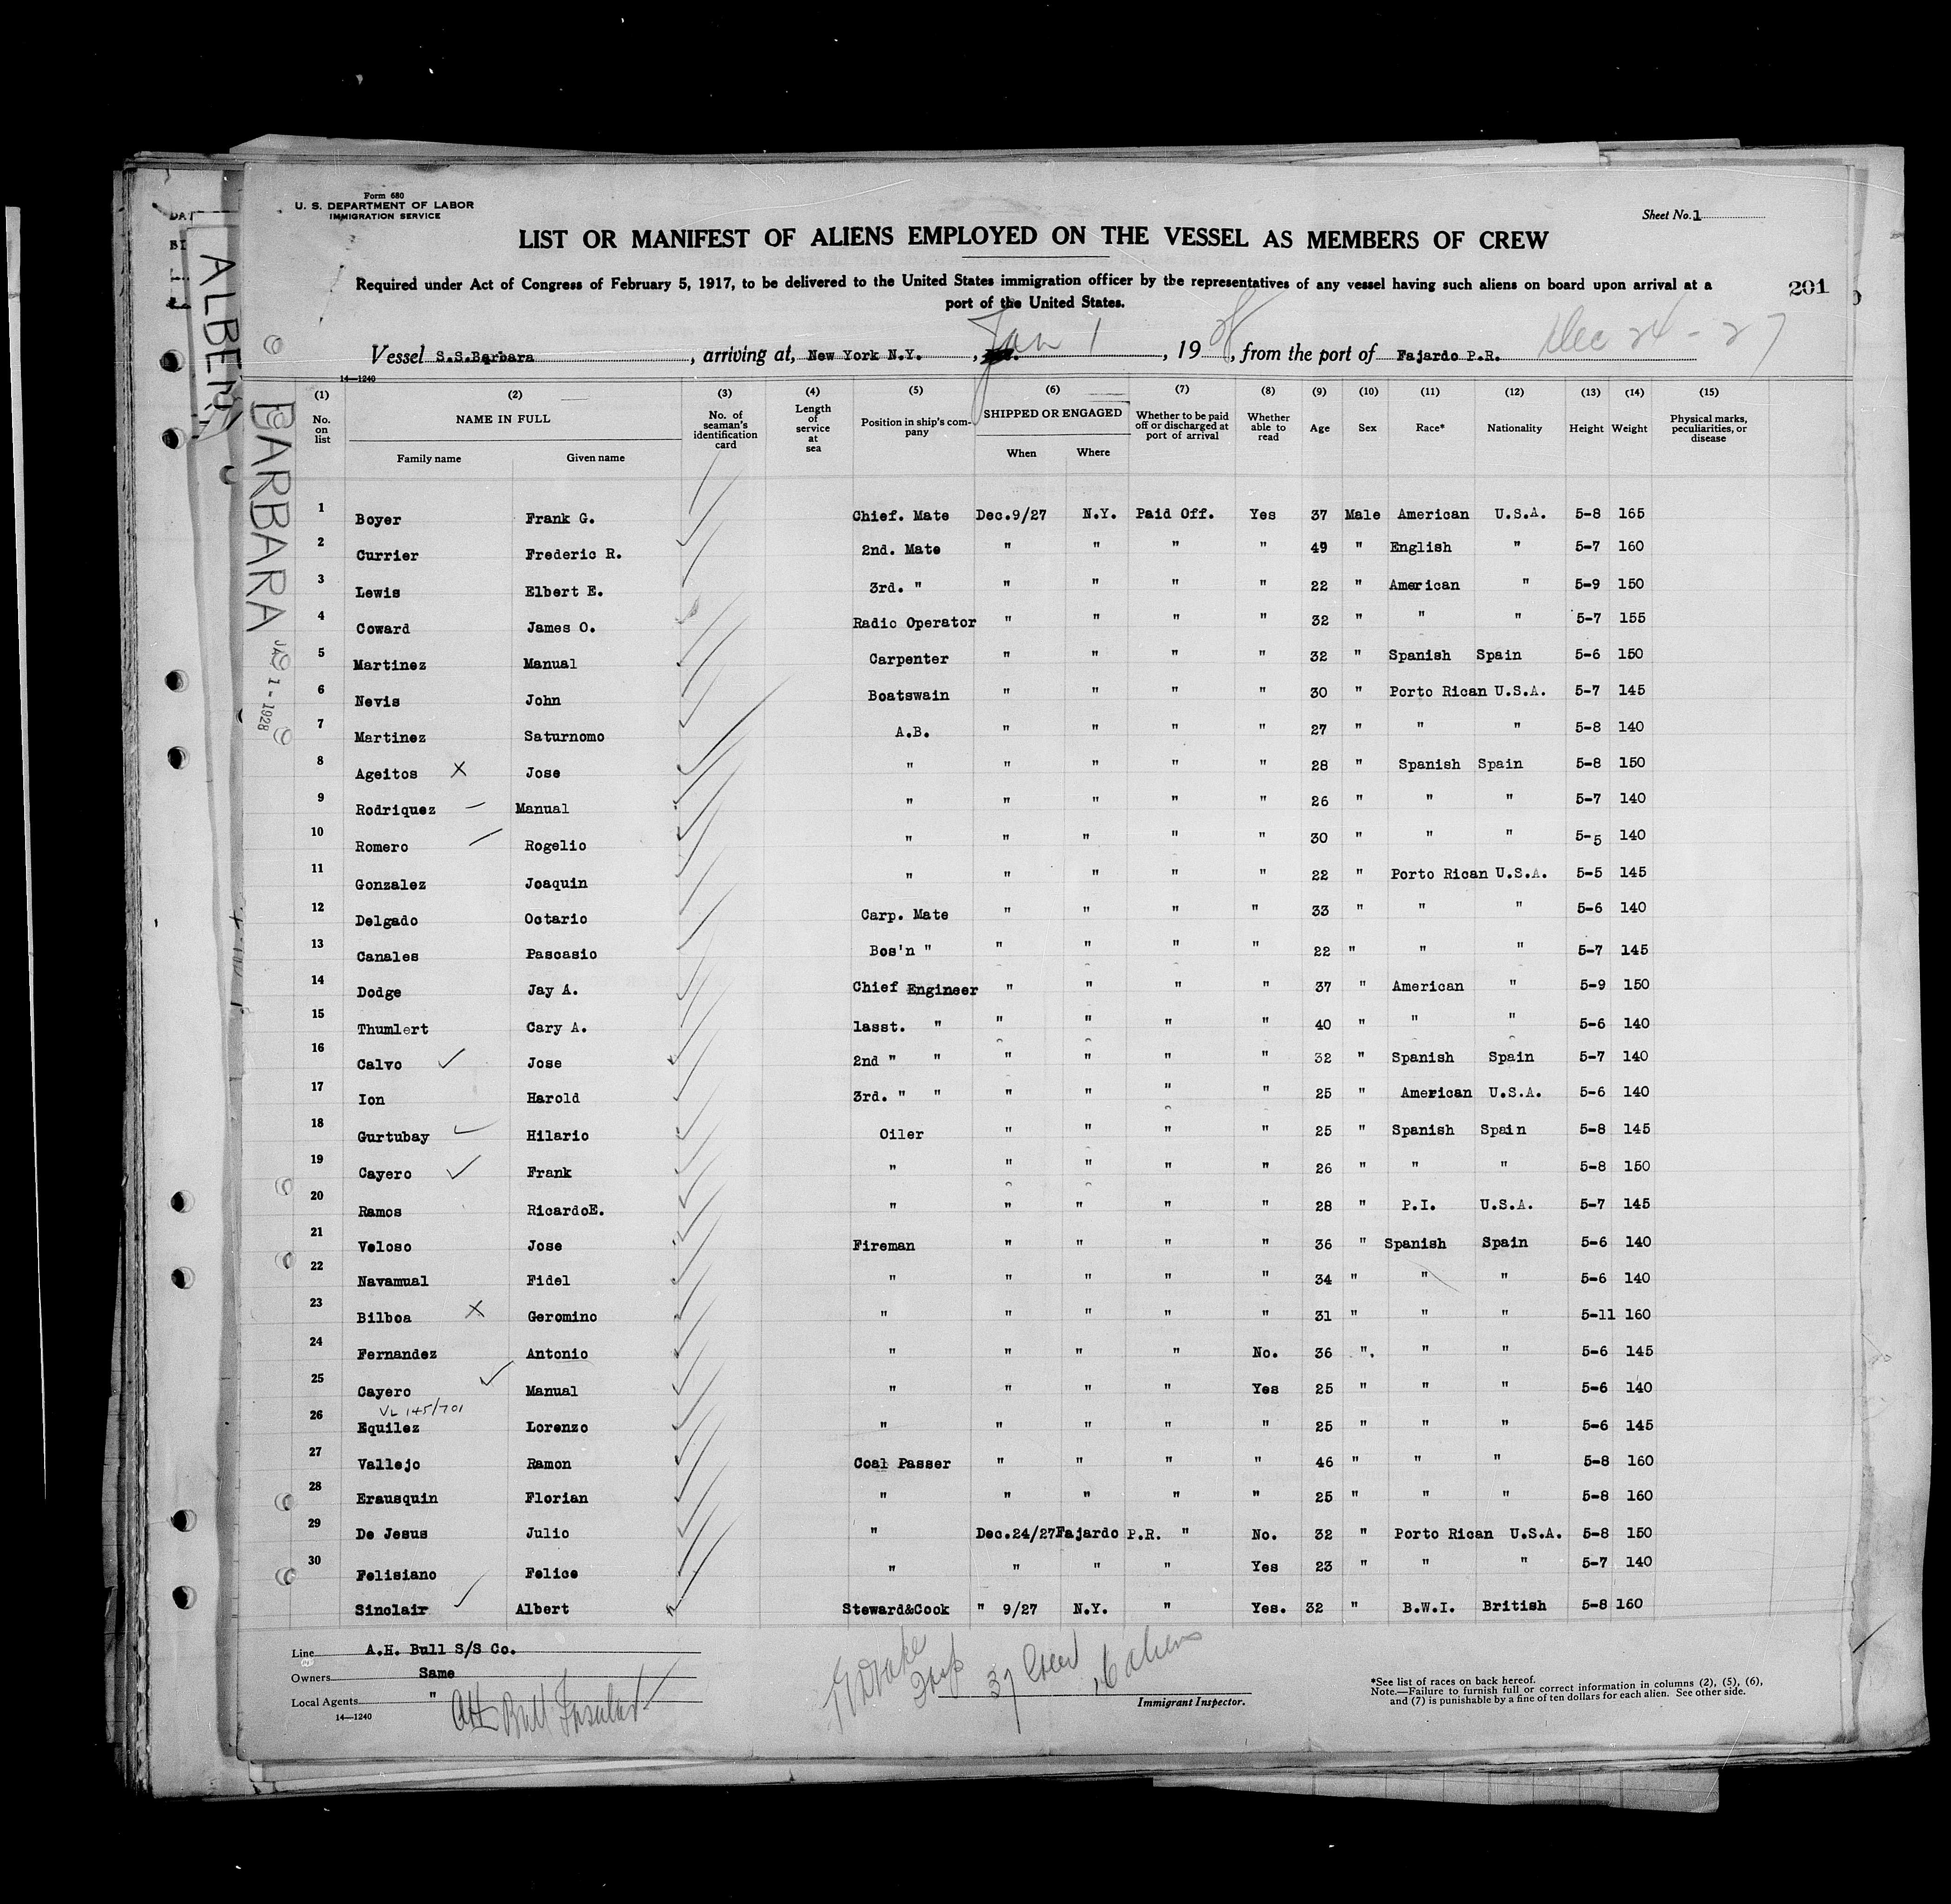 Form 680
U. S. DEPARTMENT OF LABOR
IMMIGRATION SERVICE
Sheet No. 1
LIST OR MANIFEST OF ALIENS EMPLOYED ON THE VESSEL AS MEMBERS OF CREW
Required under Act of Congress of February 5, 1917, to be delivered to the United States immigration officer by the representatives of any vessel having such aliens on board upon arrival at a
port of the United States.
201
ALBEM
BARBARA
JAN 1-1928
Vessel S.S.Barbara, arriving at, New York N.Y., Jan 1, 1928, from the port of Fajardo P.R. Dec 24-27
14—1240
(1) (2) (3) (4) (5) (6) (7) (8) (9) (10) (11) (12) (13) (14) (15)
No. on list NAME IN FULL Family name Given name No. of seaman's identification card Length of service at sea Position in ship's company SHIPPED OR ENGAGED When Where Whether to be paid off or discharged at port of arrival Whether able to read Age Sex Race* Nationality Height Weight Physical marks, peculiarities, or disease
1 Boyer Frank G. Chief. Mate Dec.9/27 N.Y. Paid Off. Yes 37 Male American U.S.A. 5-8 165
2 Currier Frederic R. 2nd. Mate " " " " 49 " English " 5-7 160
3 Lewis Elbert E. 3rd. " " " " " 22 " American " 5-9 150
4 Coward James O. Radio Operator " " " " 32 " " " 5-7 155
5 Martinez Manual Carpenter " " " " 32 " Spanish Spain 5-6 150
6 Nevis John Boatswain " " " " 30 " Porto Rican U.S.A. 5-7 145
7 Martinez Saturnomo A.B. " " " " 27 " " " 5-8 140
8 Ageitos X Jose " " " " " 28 " Spanish Spain 5-8 150
9 Rodriquez Manual " " " " " 26 " " " 5-7 140
10 Romero Rogelio " " " " " 30 " " " 5-5 140
11 Gonzalez Joaquin " " " " " 22 " Porto Rican U.S.A. 5-5 145
12 Delgado Octario Carp. Mate " " " " 33 " " " 5-6 140
13 Canales Pascasio Bos'n " " " " " 22 " " " 5-7 145
14 Dodge Jay A. Chief Engineer " " " " 37 " American " 5-9 150
15 Thumlert Cary A. 1asst. " " " " " 40 " " " 5-6 140
16 Calvo Jose 2nd " " " " " " 32 " Spanish Spain 5-7 140
17 Ion Harold 3rd. " " " " " " 25 " American U.S.A. 5-6 140
18 Gurtubay Hilario Oiler " " " " 25 " Spanish Spain 5-8 145
19 Cayero Frank " " " " " 26 " " " 5-8 150
20 Ramos RicardoE. " " " " " 28 " P.I. U.S.A. 5-7 145
21 Veloso Jose Fireman " " " " 36 " Spanish Spain 5-6 140
22 Navamual Fidel " " " " " 34 " " " 5-6 140
23 Bilboa X Geromino " " " " " 31 " " " 5-11 160
24 Fernandez Antonio " " " " No. 36 ". " " 5-6 145
25 Cayero Manual " " " " Yes 25 " " " 5-6 140
VL 145/701
26 Equilez Lorenzo " " " " " 25 " " " 5-6 145
27 Vallejo Ramon Coal Passer " " " " 46 " " " 5-8 160
28 Erausquin Florian " " " " " 25 " " " 5-8 160
29 De Jesus Julio " Dec.24/27 Fajardo P.R. " No. 32 " Porto Rican U.S.A. 5-8 150
30 Felisiano Felice " " " " Yes 23 " " " 5-7 140
Sinclair Albert Steward&Cook " 9/27 N.Y. " Yes. 32 " B.W.I. British 5-8 160
Line A.H. Bull S/S Co.
Owners Same
Local Agents "
14—1240
AH Bull Insular
37 Crew 16 aliens
Immigrant Inspector.
*See list of races on back hereof.
Note.—Failure to furnish full or correct information in columns (2), (5), (6),
and (7) is punishable by a fine of ten dollars for each alien. See other side.